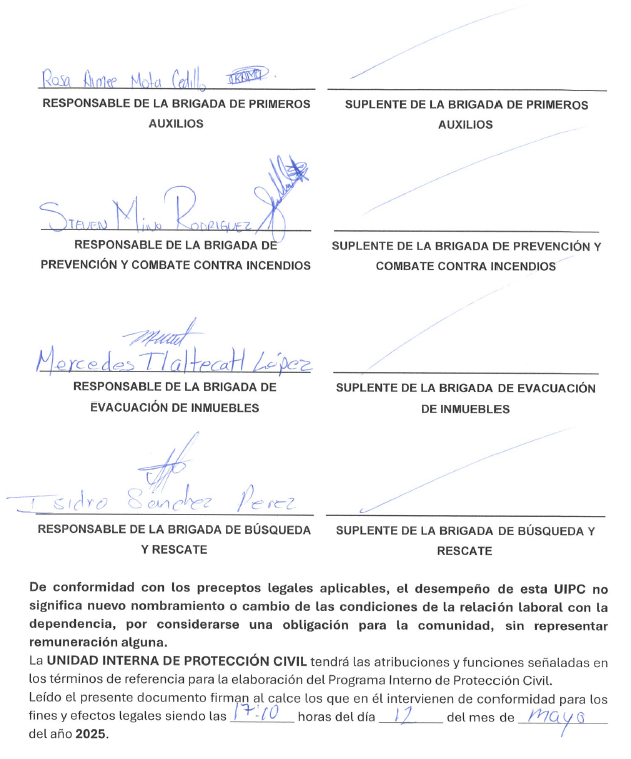 Rosa Aimee Mota Cedillo
RESPONSABLE DE LA BRIGADA DE PRIMEROS
AUXILIOS
SUPLENTE DE LA BRIGADA DE PRIMEROS
AUXILIOS
STEVEN RODRIGUEZ
RESPONSABLE DE LA BRIGADA DE
PREVENCIÓN Y COMBATE CONTRA INCENDIOS
SUPLENTE DE LA BRIGADA DE PREVENCIÓN Y
COMBATE CONTRA INCENDIOS
Mercedes Tlaltecatl López
RESPONSABLE DE LA BRIGADA DE
EVACUACIÓN DE INMUEBLES
SUPLENTE DE LA BRIGADA DE EVACUACIÓN
DE INMUEBLES
Isidro Sánchez Perez
RESPONSABLE DE LA BRIGADA DE BÚSQUEDA
Y RESCATE
SUPLENTE DE LA BRIGADA DE BÚSQUEDA Y
RESCATE
De conformidad con los preceptos legales aplicables, el desempeño de esta UIPC no
significa nuevo nombramiento o cambio de las condiciones de la relación laboral con la
dependencia, por considerarse una obligación para la comunidad, sin representar
remuneración alguna.
La UNIDAD INTERNA DE PROTECCIÓN CIVIL tendrá las atribuciones y funciones señaladas en
los términos de referencia para la elaboración del Programa Interno de Protección Civil.
Leído el presente documento firman al calce los que en él intervienen de conformidad para los
fines y efectos legales siendo las 17:10 horas del día 12 del mes de mayo
del año 2025.